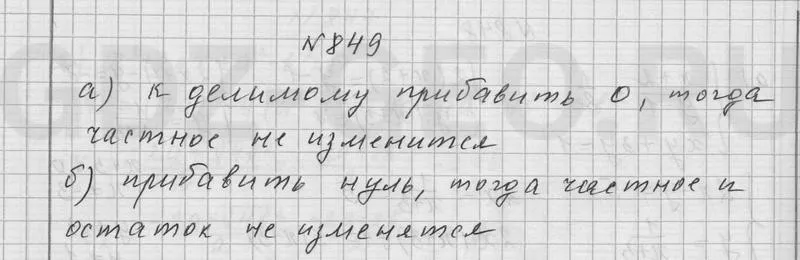 №849
а) к делимому прибавить 0, тогда
частное не изменится
б) прибавить нуль, тогда частное и
остаток не изменятся